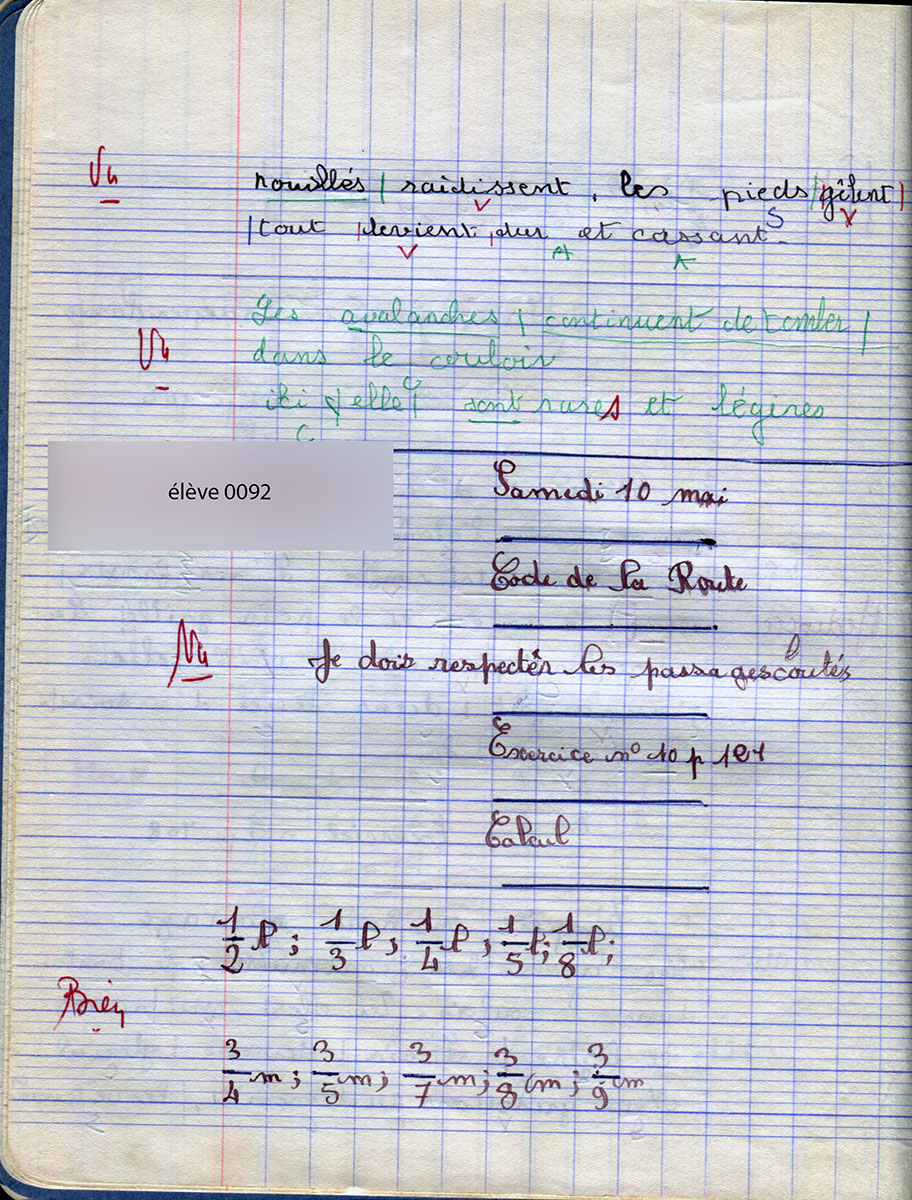 Vu
nouillés | raidissent, les pieds | gêlent |
V V S
| tout | devient | dur et cassant.
V A A
Les avalanches | continuent de tomber |
Vu
dans le couloir
C
elles | sont rares et légères
C
élève 0092
Samedi 10 mai
Code de la Route
Vu
Je dois respecter les passages cloutés
Exercice n° 10 p 121
Calcul
1/2 l ; 1/3 l ; 1/4 l ; 1/5 l ; 1/8 l ;
Bien
3/4 m ; 3/5 m ; 3/7 m ; 3/8 m ; 3/9 m